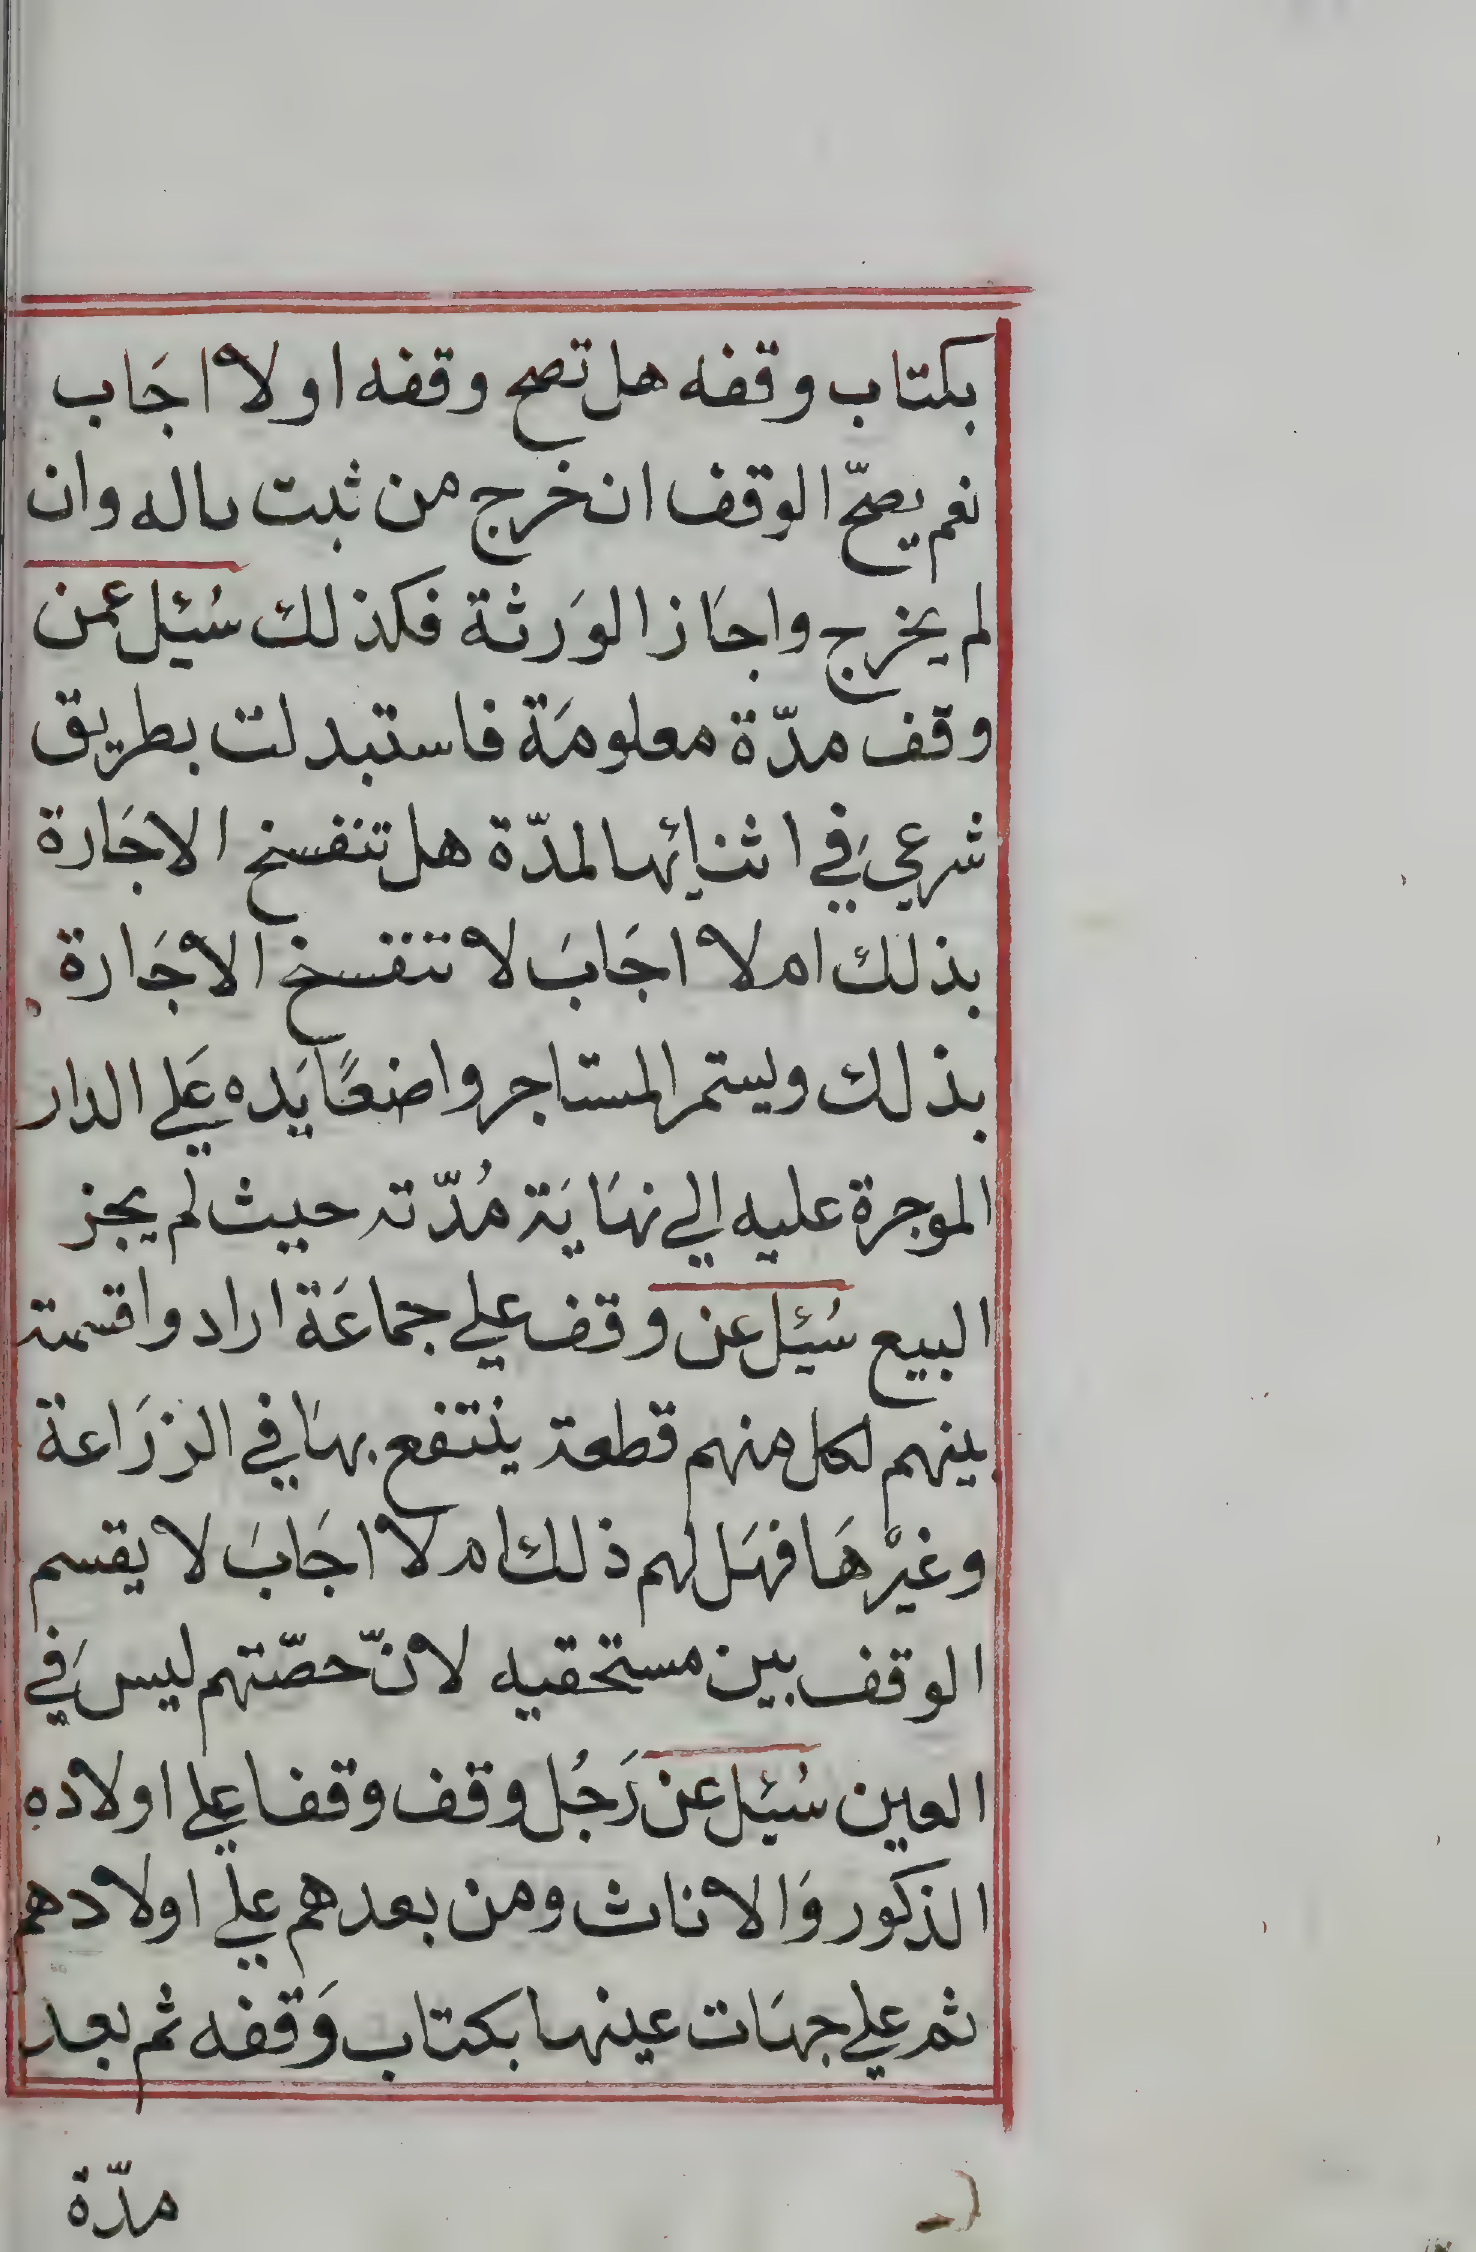 بكتاب وقفه هل تصح وقفه او لا اجَاب
نعم يصحّ الوقف ان خرج من ثبت ماله وان
لم يخرج واجَاز الوَرثة فكذلك سُئِل عمن
وقف مدّة معلومَة فاستبدلت بطريق
شرعي في اثنائها المدّة هل تنفسخ الاجَارة
بذلك ام لا اجَابَ لا تنفسخ الاجَارة
بذلك ويستمر المستاجر واضعًا يَده عَلي الدار
الموجرة عليه الي نهَايَة مُدّته حيث لم يجز
البيع سُئِل عن وقف علي جماعَة ارادوا قسمته
بينهم لكل منهم قطعة ينتفع بهَا في الزرَاعة
وغيْرهَا فهَل لهم ذلك ام لا اجَابَ لا يقسم
الوقف بين مستحقيه لانّ حصّتهم ليسَ في
العين سُئِل عن رَجُل وقف وقفا علي اولاده
الذكور وَالاناث ومن بعدهم علي اولادهم
ثم علي جهَات عينها بكتاب وَقفه ثم بعد
مدّة